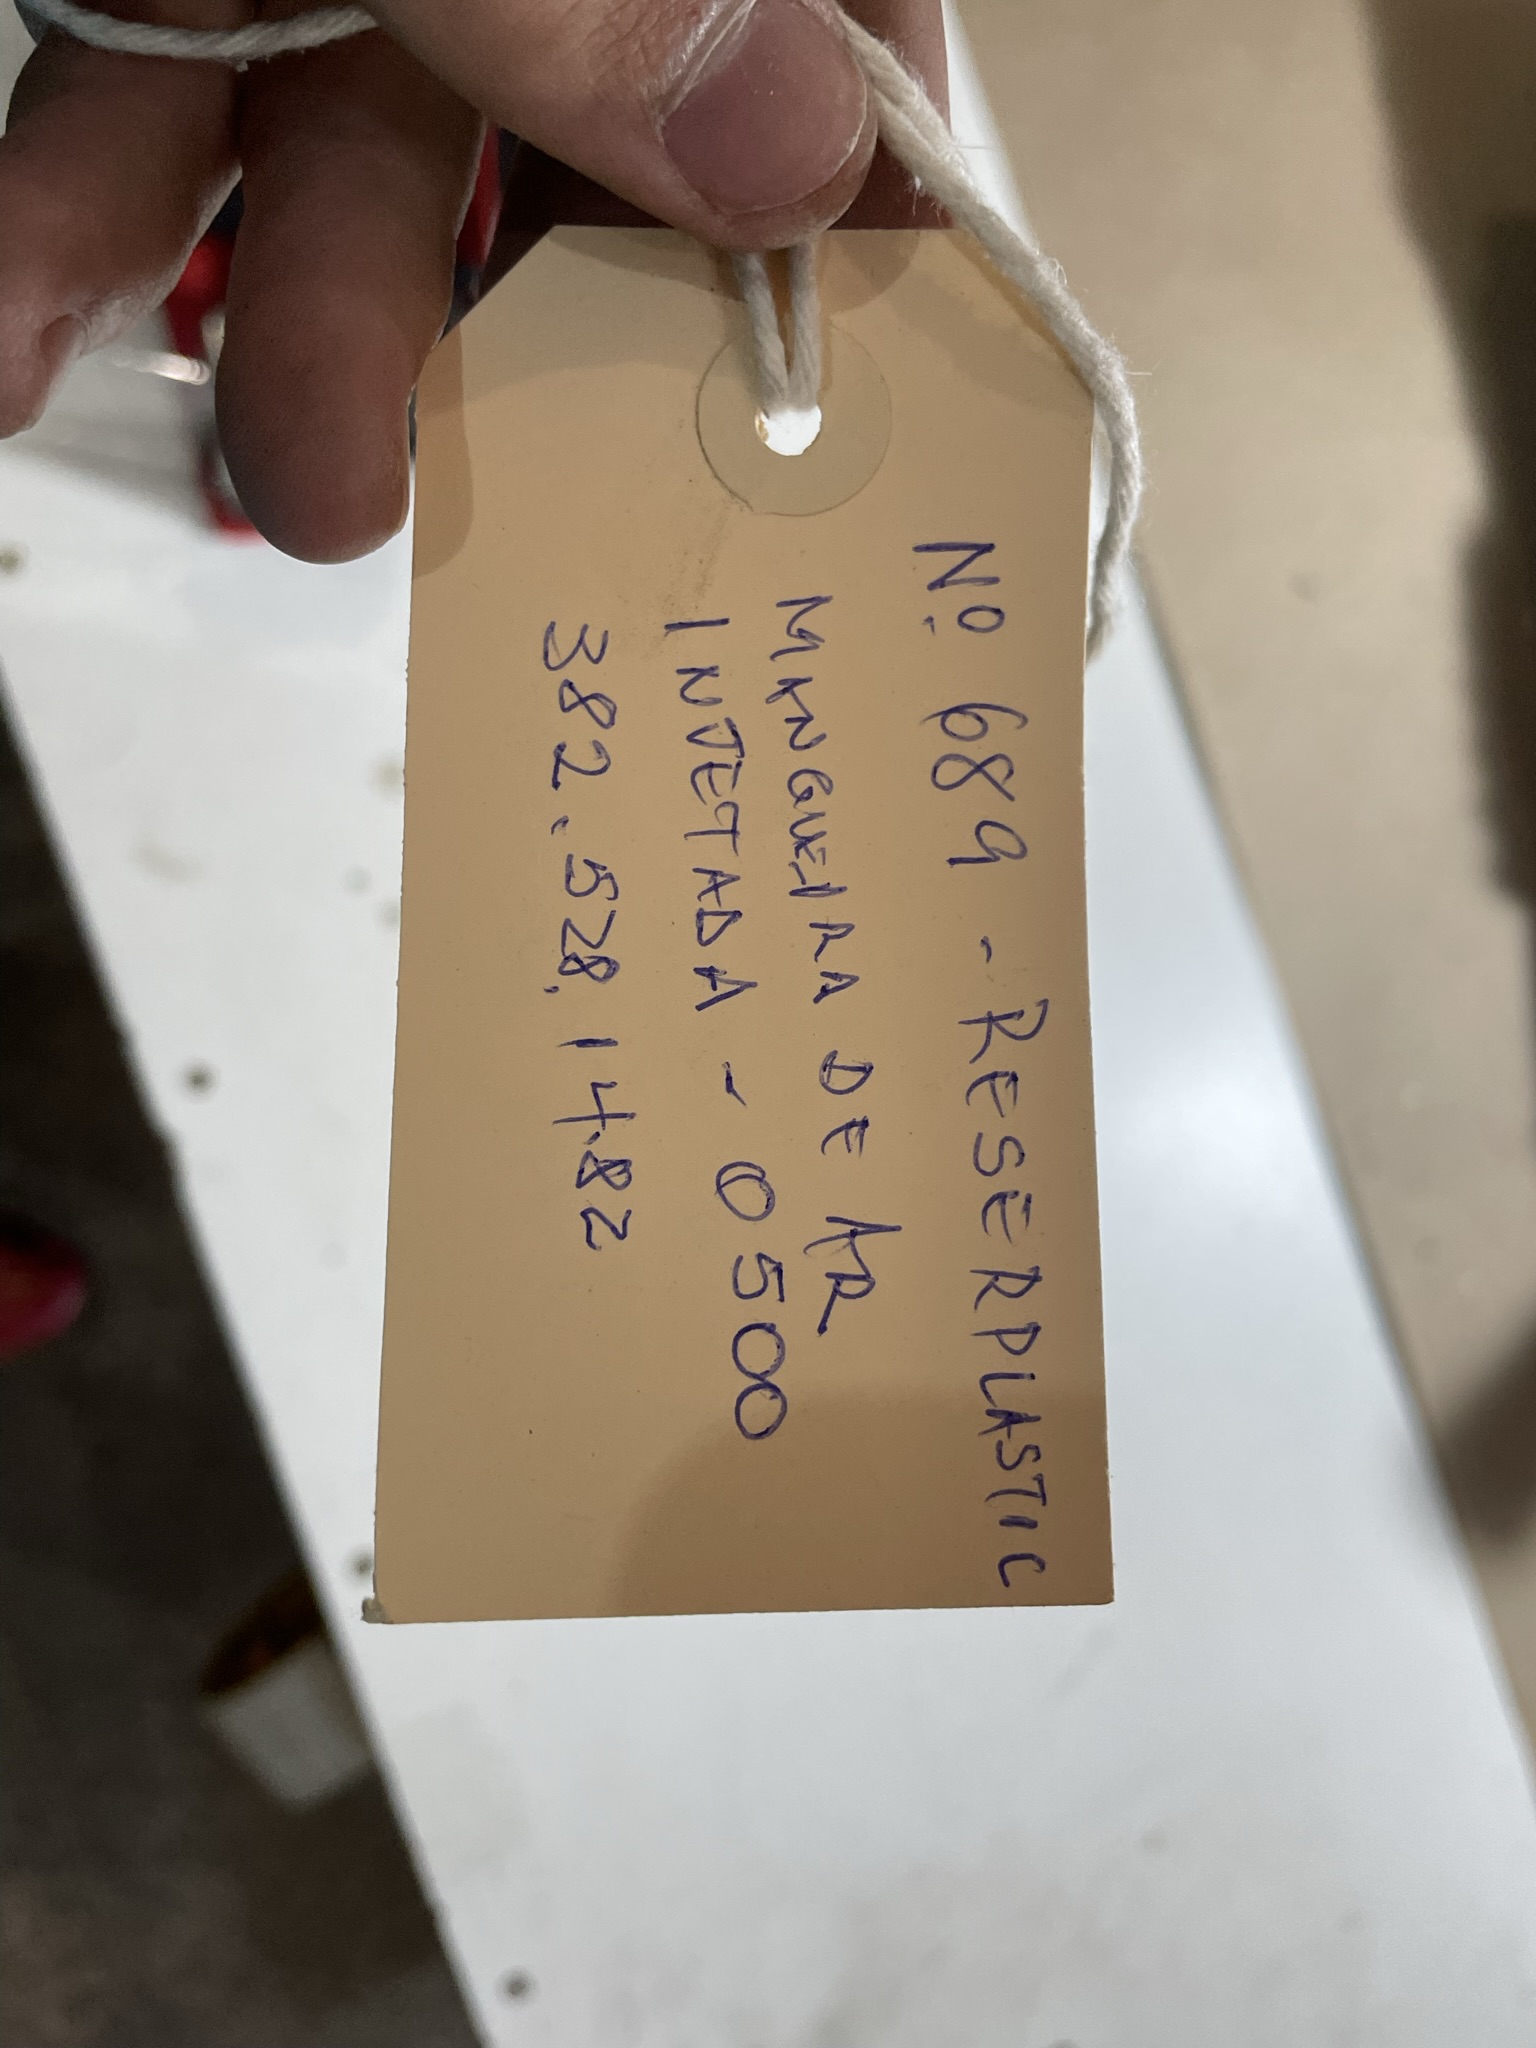 Nº 689 - RESERPLASTIC
MANGUEIRA DE AR
INJETADA - 0500
382.528.14.82